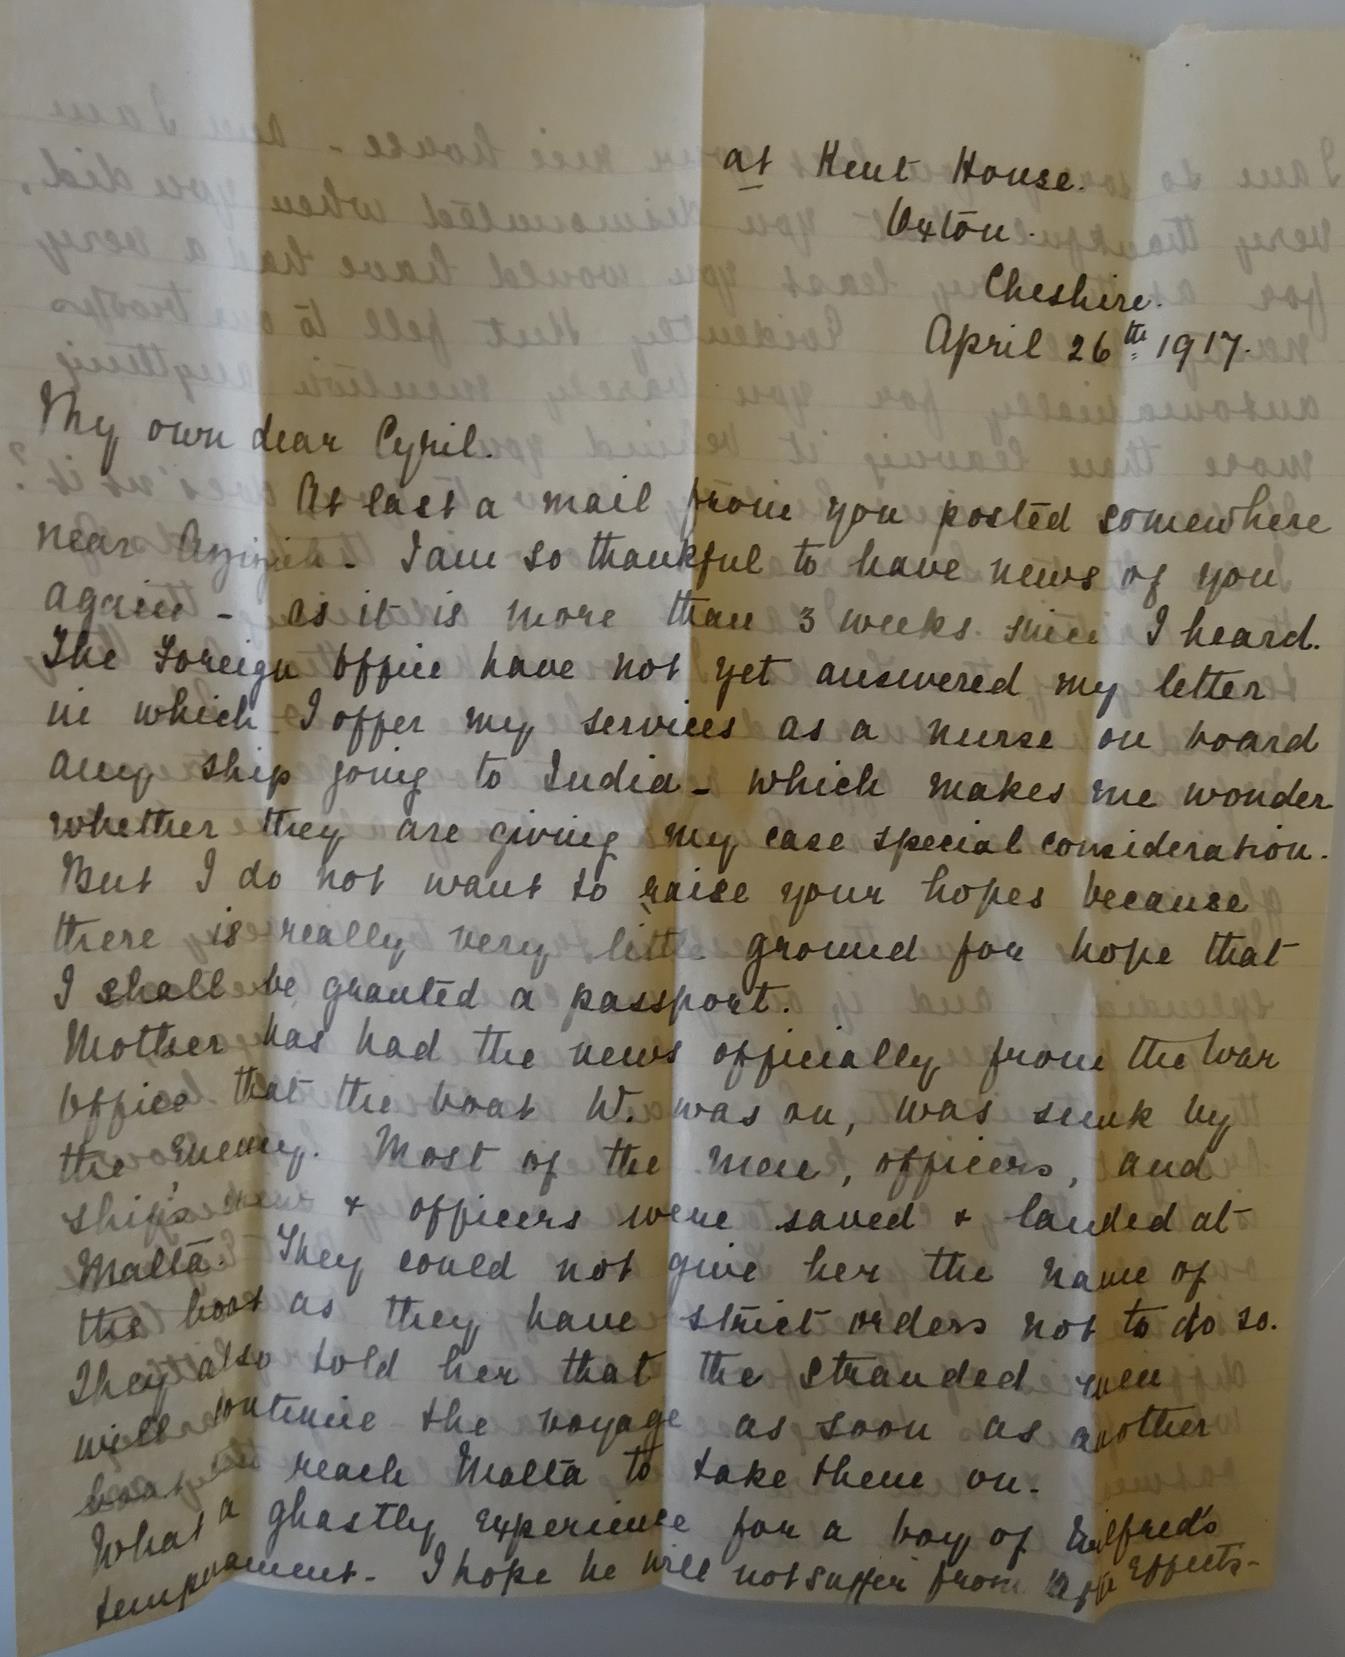 at Kent House.
Oxton.
Cheshire.
April 26th 1917.
My own dear Cyril.
At last a mail from you posted somewhere
near Azizieh - I am so thankful to have news of you
again - as it is more than 3 weeks since I heard.
The Foreign Office have not yet answered my letter
in which I offer my services as a nurse on board
any ship going to India - which makes me wonder
whether they are giving my case special consideration.
But I do not want to raise your hopes because
there is really very little ground for hope that
I shall be granted a passport.
Mother has had the news officially from the War
Office that the boat W. was on, was sunk by
the enemy. Most of the men, officers, and
ship's crew & officers were saved & landed at
Malta. They could not give her the name of
the boat as they have strict orders not to do so.
They also told her that the stranded men
will continue the voyage as soon as another
boat can reach Malta to take them on.
What a ghastly experience for a boy of Wilfred's
temperament - I hope he will not suffer from after effects -